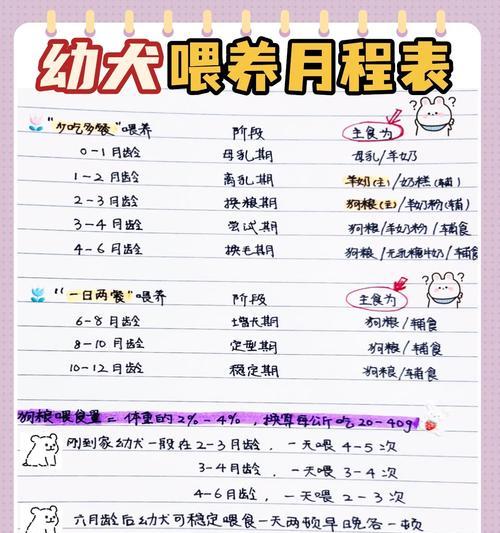 幼犬喂养月程表
"少吃多餐"喂养 阶段 主食为
0-1月龄 母乳期 母乳/羊奶
1-2月龄 离乳期 羊奶(主)/奶糕(辅)
2-3月龄 换粮期 狗粮(主)/羊奶粉(辅)
3-4月龄 尝试期 狗粮/羊奶粉/辅食
4-6月龄 换毛期 狗粮/无乳糖牛奶/辅食
"一日两餐"喂养 阶段 主食为
6-8月龄 增长期 狗粮/辅食
8-10月龄 定型期 狗粮/辅食
10-12月龄 稳定期 狗粮/辅食
狗粮喂食量=体重的2%-4%,换算每公斤吃20-40g
刚到家幼犬一般在2-3月龄,一天喂4-5次
3-4月龄,一天喂3-4次
4-6月龄,一天喂2-3次
六月龄后幼犬可稳定喂食一天两顿早晚各一顿